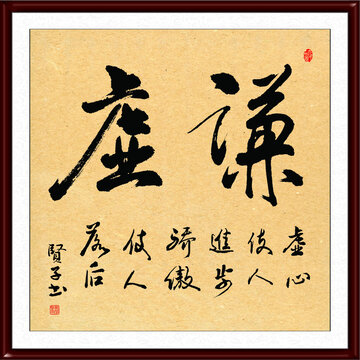 謙虚
虚心
使人
進步
骄傲
使人
落后
賢子书